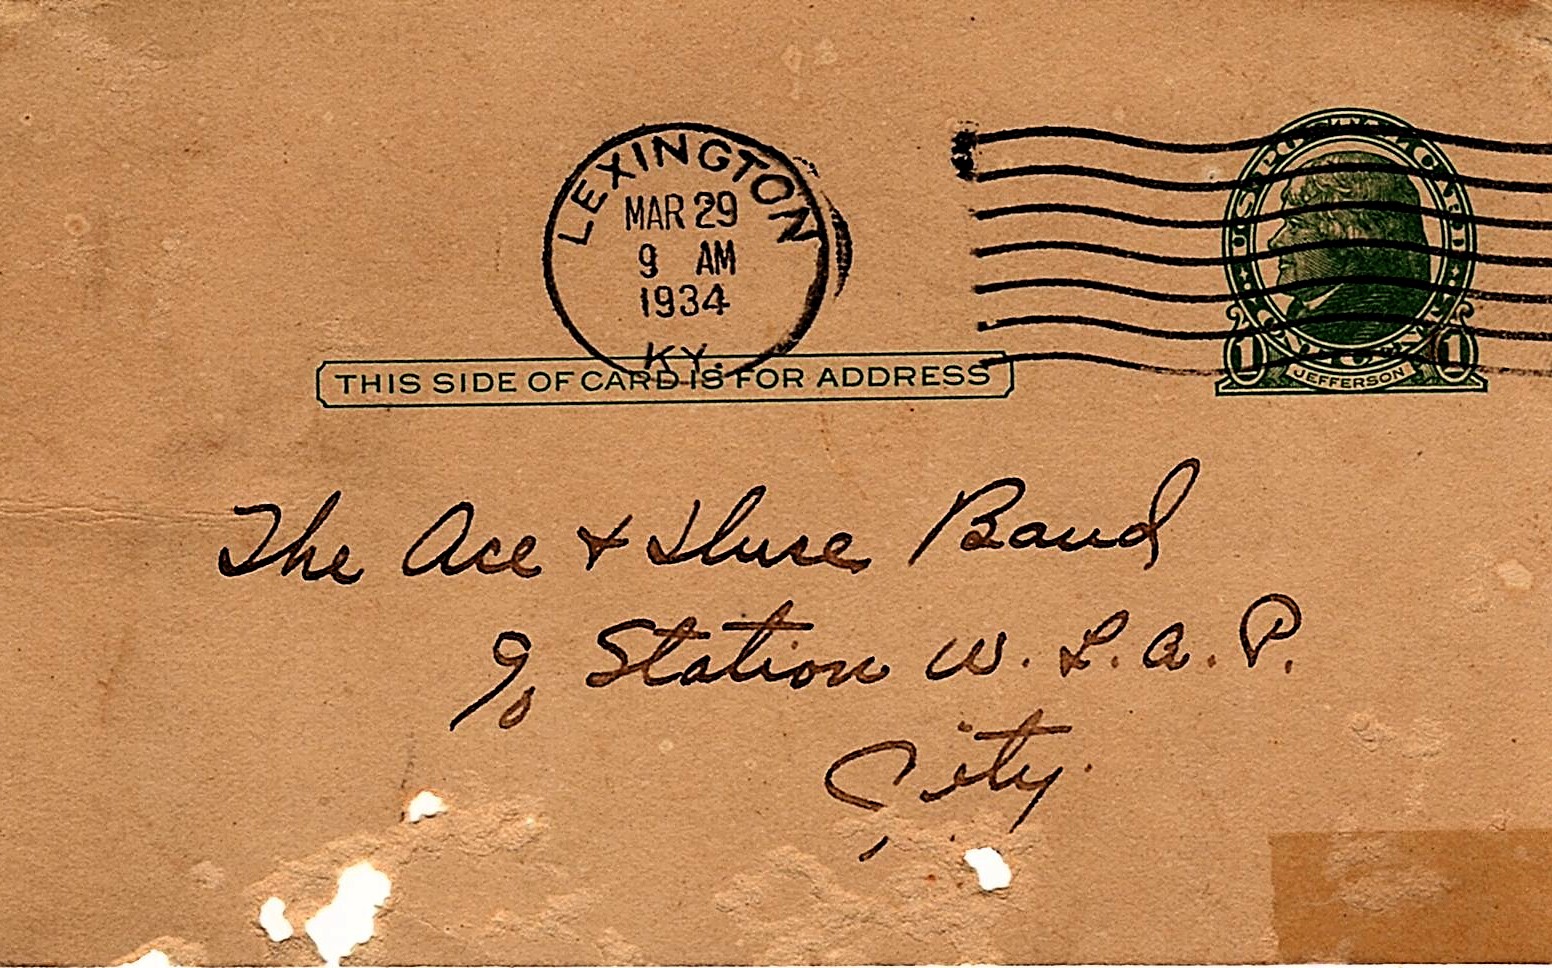 LEXINGTON
MAR 29
9 AM
1934
KY.
1 JEFFERSON 1
THIS SIDE OF CARD IS FOR ADDRESS
The Ace + Duce Band
% Station W. L. A. P.
City.